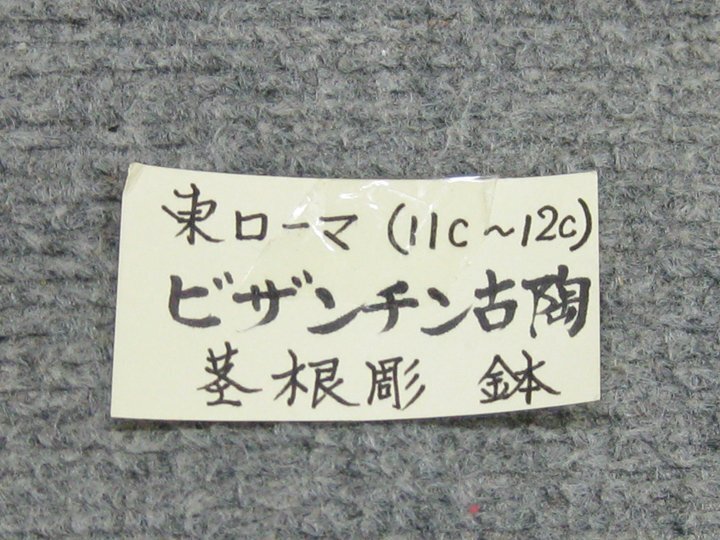 東ローマ (11c～12c)
ビザンチン古陶
茎根彫 鉢